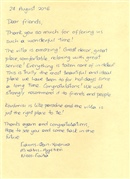 29 August 2016
Dear friends,
Thank you so much for offering us
such a wonderful time!
The villa is amazing! Great decor, great
place, comfortable, relaxing with great
service! Everything is taken care of in villa!
This is truly the most beautiful and ideal
place we have been to for holidays since
a long time. Congratulations! We will
strongly recommend it to friends and people
is like paradise and the villa is
just the right place to be!
Thanks again and congratulations.
Hope to see you and come back in the
future